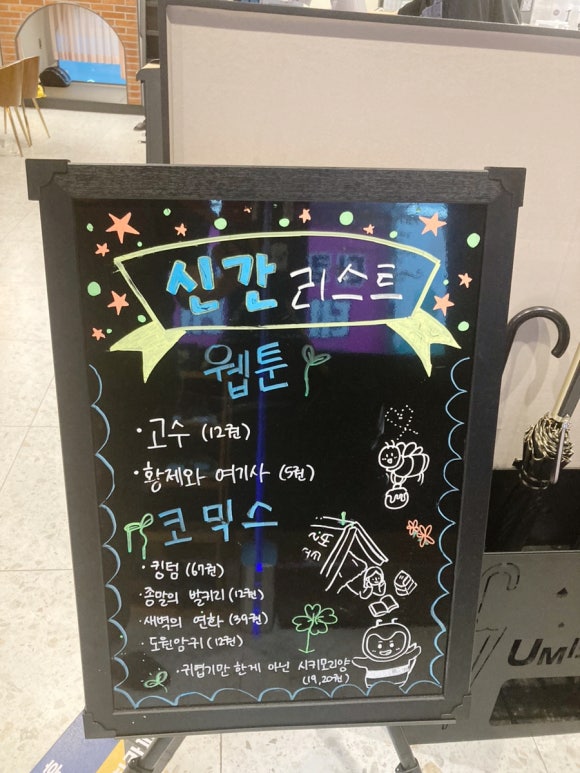 신간 리스트
웹툰
· 고수 (12권)
· 황제와 여기사 (5권)
코믹스
· 킹덤 (67권)
· 종말의 발키리 (12권)
· 새벽의 연화 (39권)
· 도원암귀 (12권)
· 귀엽기만 한게 아닌 시키모리양
(19, 20권)